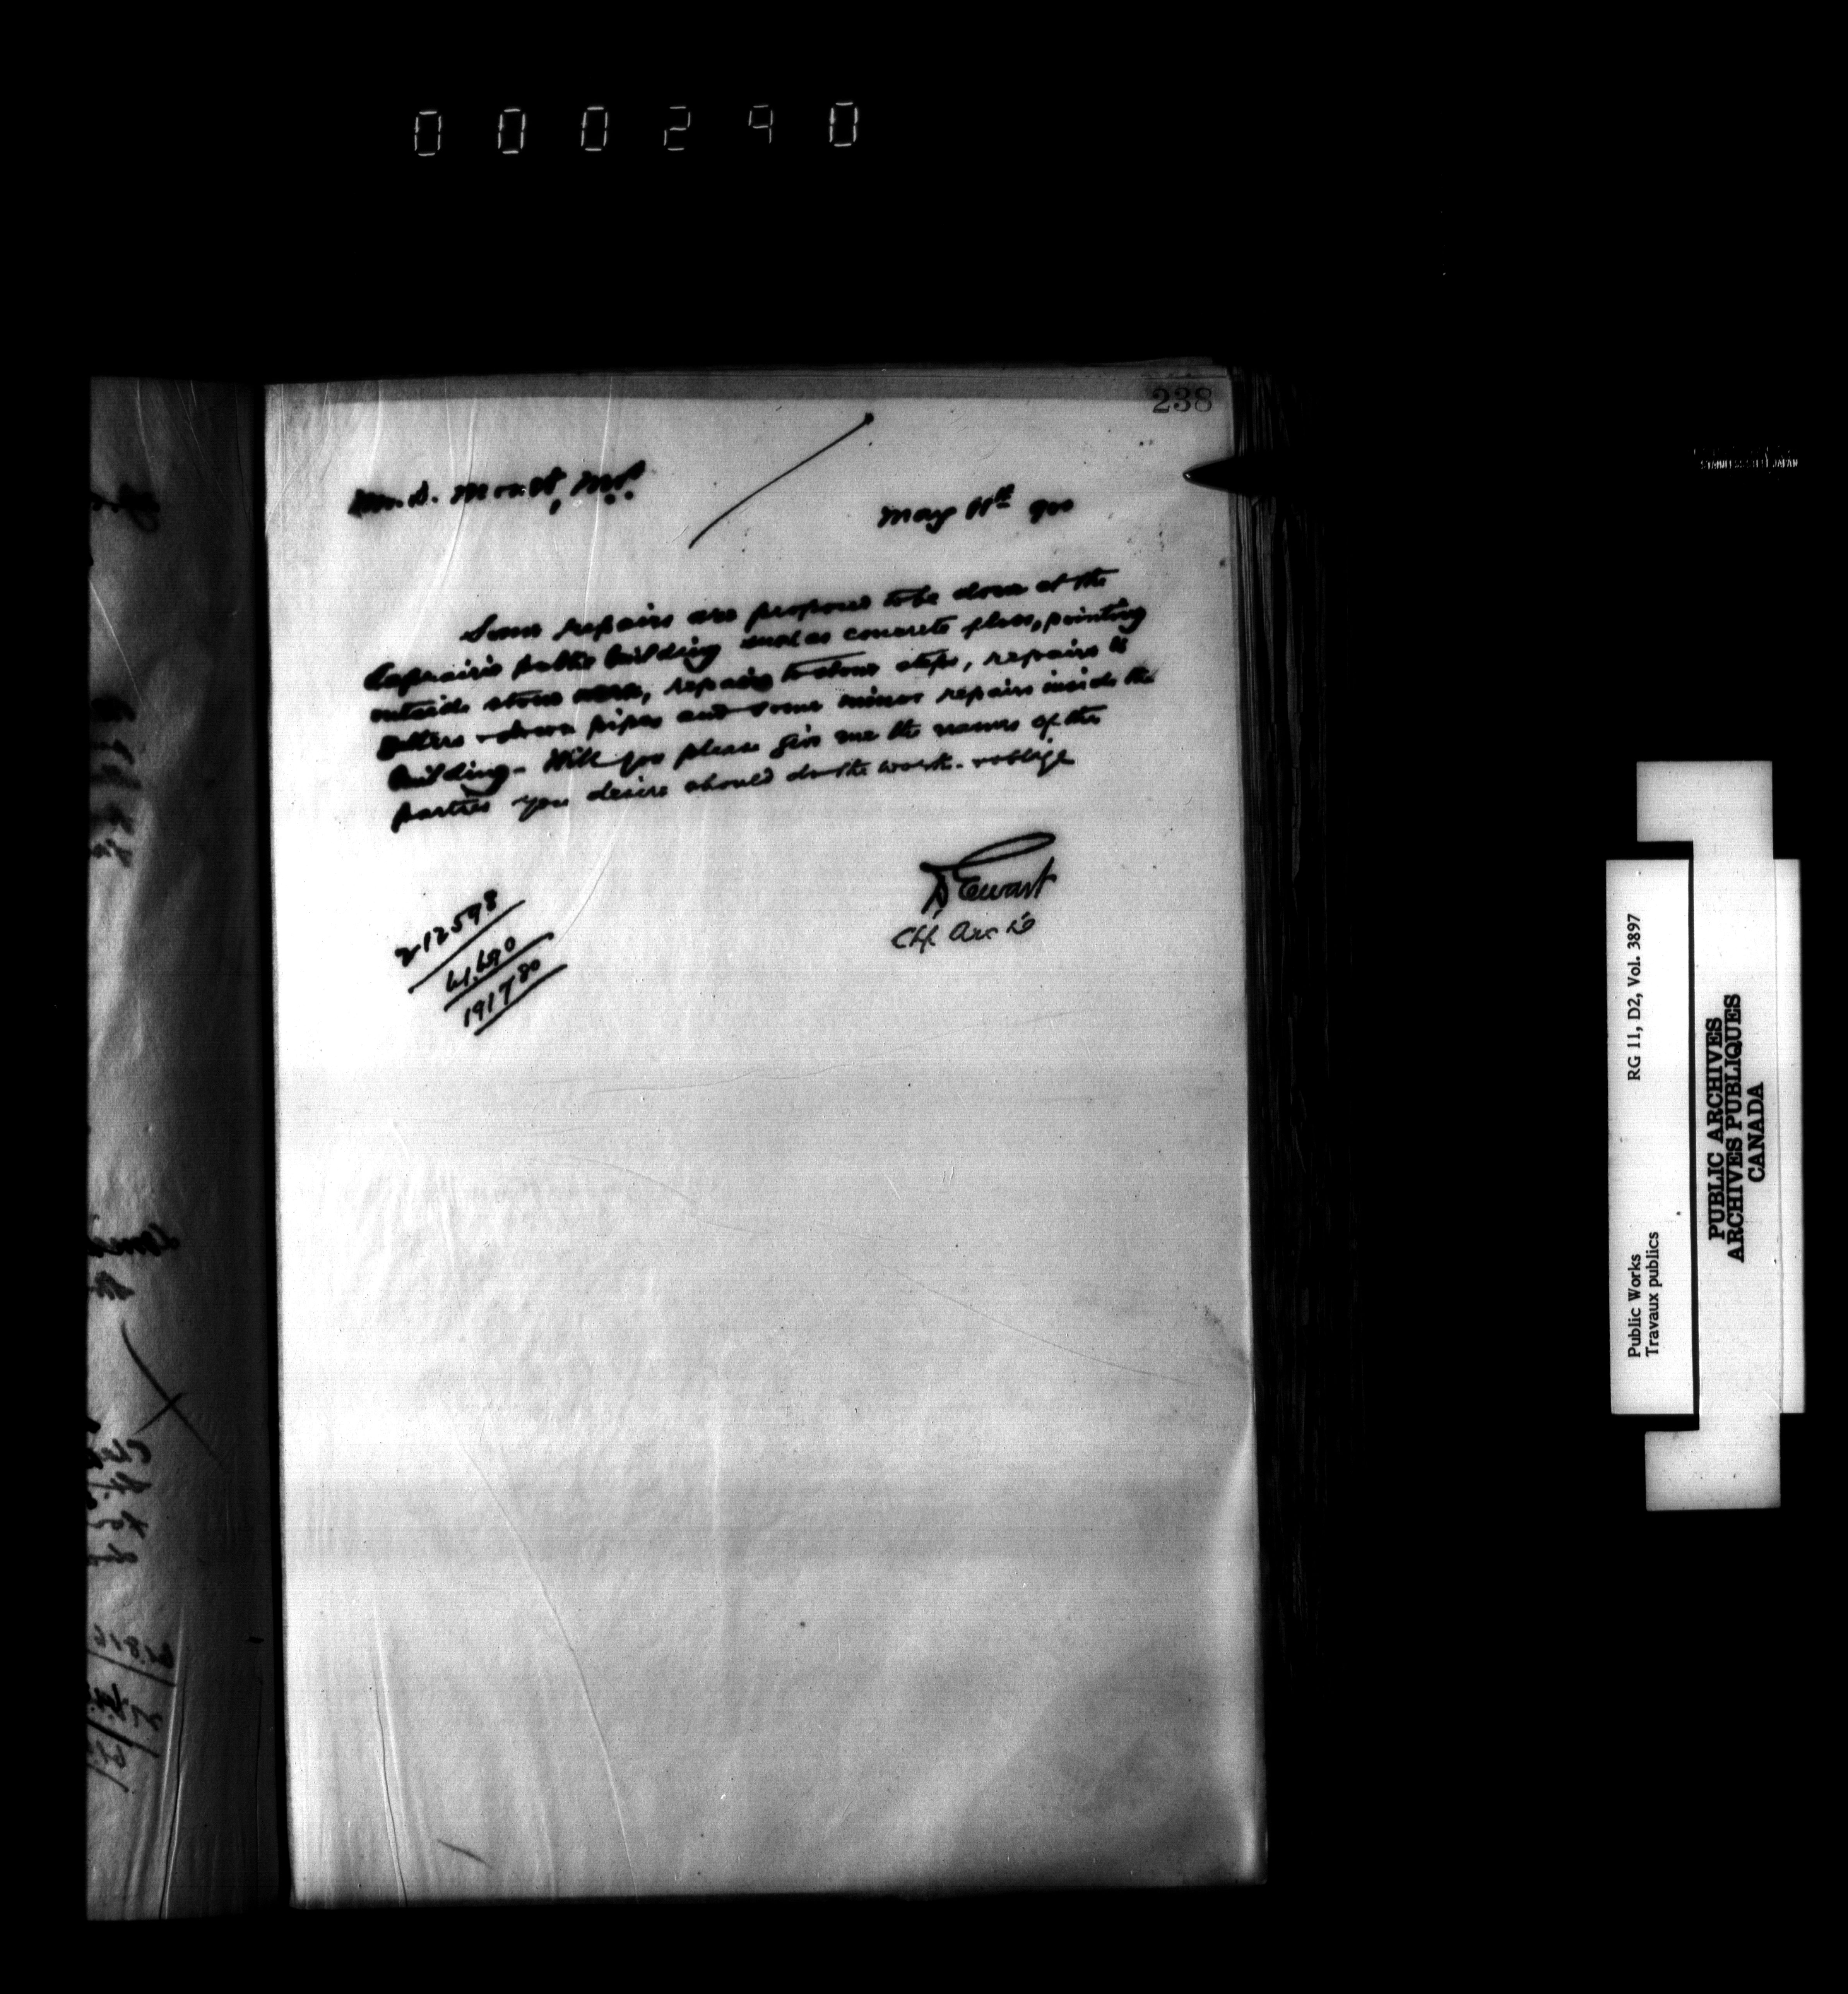 000290
238
May 11th 900
Some repairs are proposed to be done at the
Laprairie public building such as concrete floor, pointing
outside stone work, repairs to stone steps, repairs to
gutters & down pipes and some minor repairs inside the
building. Will you please give me the names of the
parties you desire should do the work. & oblige
D Ewart
Chf. Arct
212598
191780
STAINLESS STEEL JAPAN
Public Works RG 11, D2, Vol. 3897
Travaux publics
PUBLIC ARCHIVES
ARCHIVES PUBLIQUES
CANADA